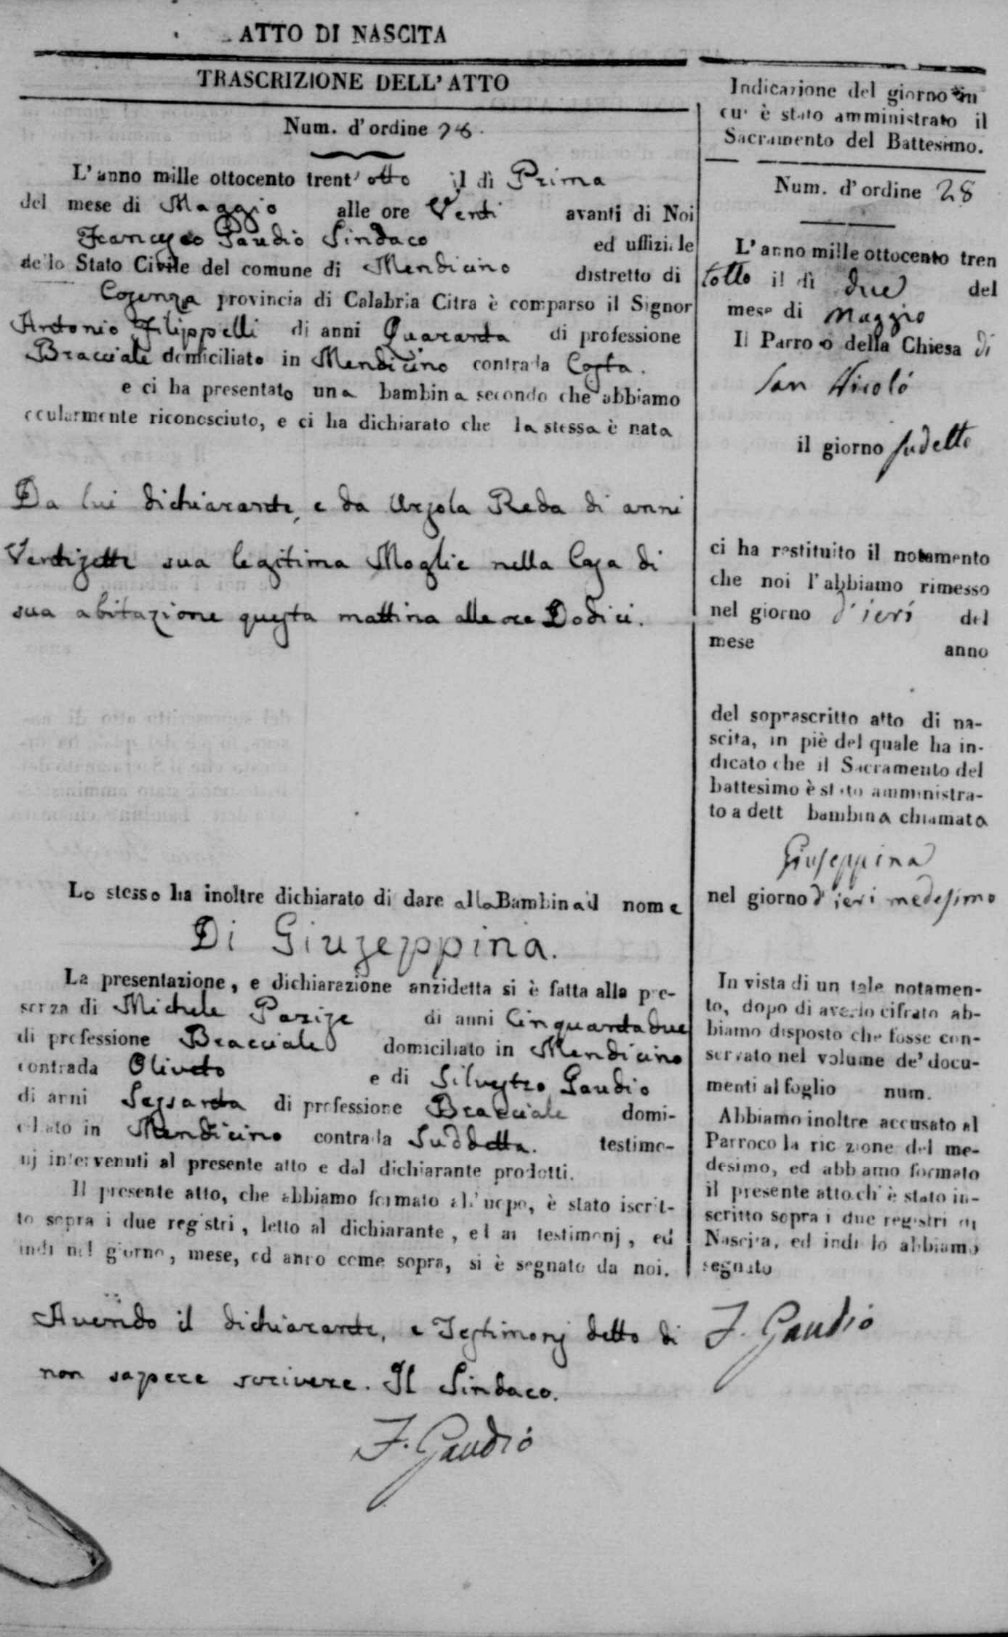 ATTO DI NASCITA
TRASCRIZIONE DELL' ATTO
Num. d' ordine 28.
L' anno mille ottocento trent' otto il dì Primo
del mese di Maggio alle ore Venti avanti di Noi
Francesco Gaudio Sindaco ed uffiziale
dello Stato Civile del comune di Mendicino distretto di
Cosenza provincia di Calabria Citra è comparso il Signor
Antonio Filippelli di anni Quaranta di professione
Bracciale domiciliato in Mendicino contrada Costa.
e ci ha presentato una bambina secondo che abbiamo
ocularmente riconosciuto, e ci ha dichiarato che la stessa è nata
Da lui dichiarante, e da Ursola Reda di anni
Ventisette sua legitima Moglie nella Casa di
sua abitazione questa mattina alle ore Dodici.
Lo stesso ha inoltre dichiarato di dare alla Bambina il nome
Di Giuseppina.
La presentazione, e dichiarazione anzidetta si è fatta alla pre-
senza di Michele Parise di anni Cinquantadue
di professione Bracciale domiciliato in Mendicino
contrada Oliveto e di Silvestro Gaudio
di anni Sessanta di professione Bracciale domi-
ciliato in Mendicino contrada Suddetta. testimo-
nj intervenuti al presente atto e dal dichiarante prodotti.
Il presente atto, che abbiamo formato all'uopo, è stato iscrit-
to sopra i due registri, letto al dichiarante, ed ai testimonj, ed
indi nel giorno, mese, ed anno come sopra, si è segnato da noi.
Avendo il dichiarante, e Testimonj detto di
non sapere scrivere. Il Sindaco.
F. Gaudio
Indicazione del giorno in
cui è stato amministrato il
Sacramento del Battesimo.
Num. d' ordine 28
L' anno mille ottocento tren
totto il dì due del
mese di Maggio
Il Parroco della Chiesa di
San Nicolò
il giorno sudetto
ci ha restituito il notamento
che noi l' abbiamo rimesso
nel giorno d'ieri del
mese anno
del soprascritto atto di na-
scita, in piè del quale ha in-
dicato che il Sacramento del
battesimo è stato amministra-
to a dett bambina chiamata
Giuseppina
nel giorno d'ieri medesimo
In vista di un tale notamen-
to, dopo di averlo cifrato ab-
biamo disposto che fosse con-
servato nel volume de' docu-
menti al foglio num.
Abbiamo inoltre accusato al
Parroco la ricezione del me-
desimo, ed abbiamo formato
il presente atto ch' è stato in-
scritto sopra i due registri di
Nascita, ed indi lo abbiamo
segnato
F. Gaudio